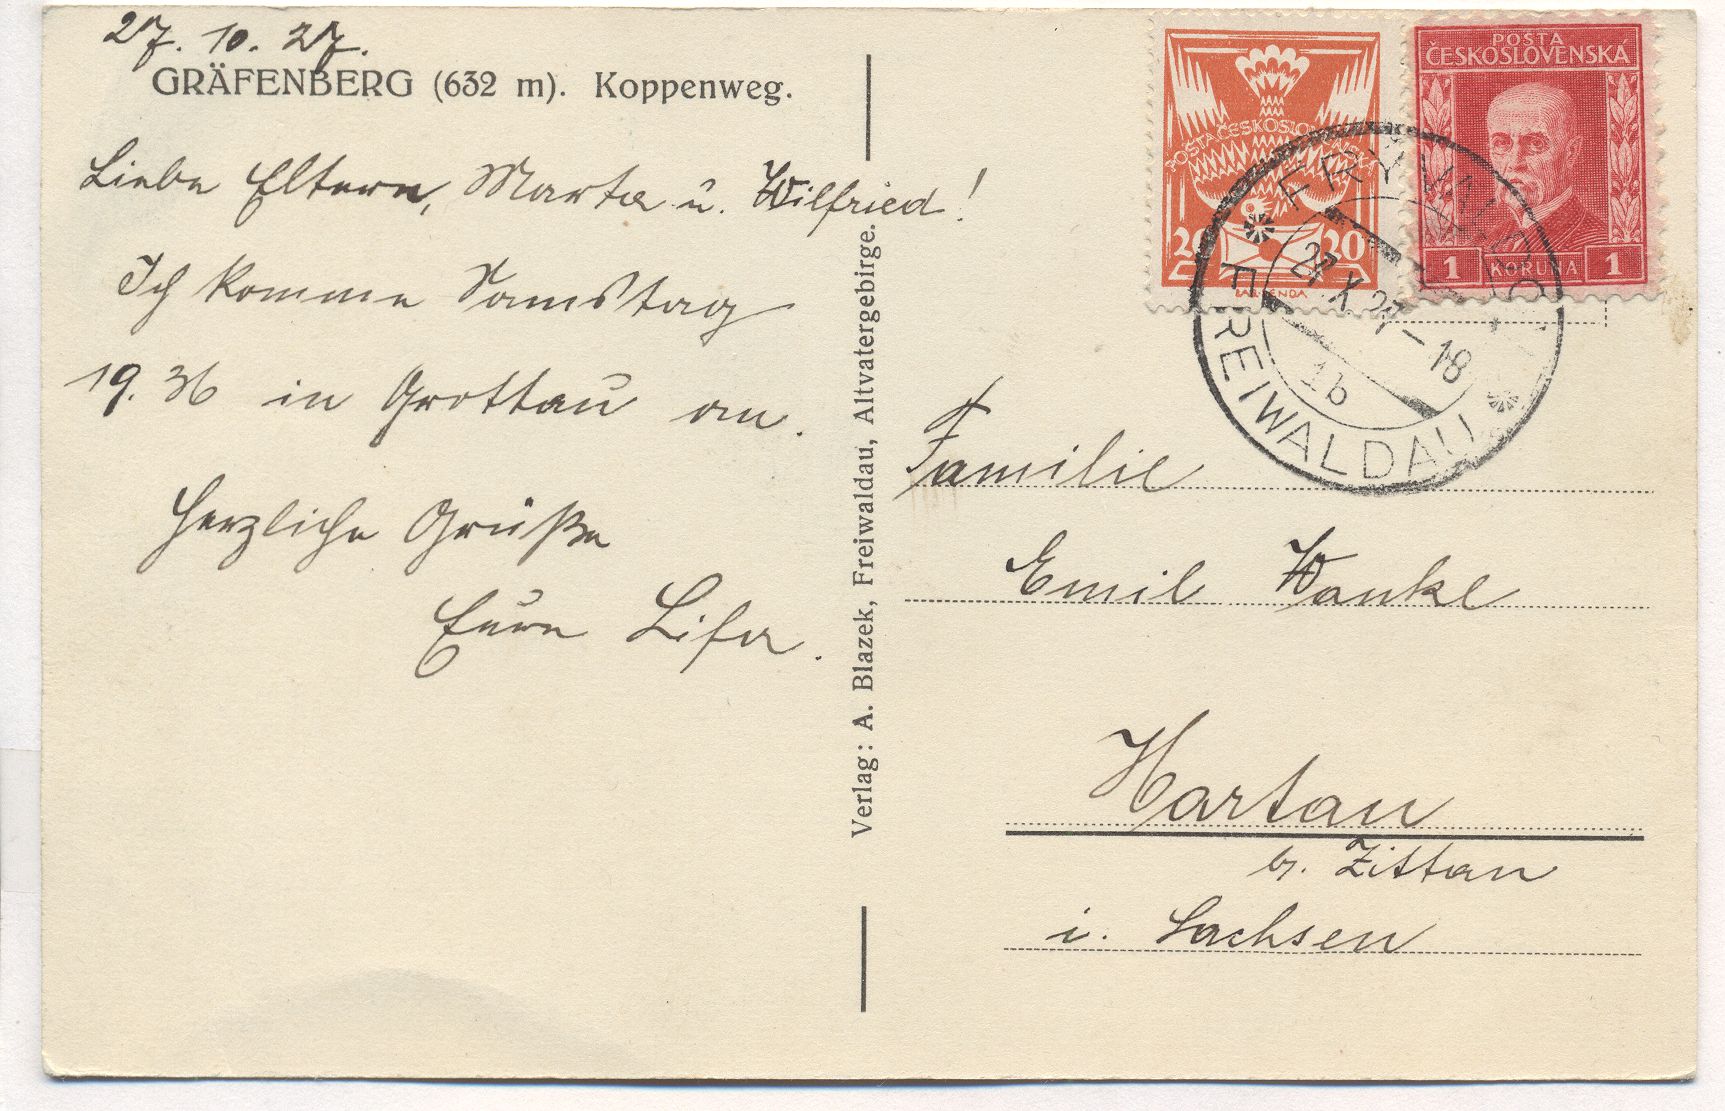 27. 10. 27.
GRÄFENBERG (632 m). Koppenweg.
Liebe Eltern, Marta u. Wilfried!
Ich komme Samstag
19.36 in Grottau an.
Herzliche Grüße
Eure Lisa.
Verlag: A. Blazek, Freiwaldau, Altvatergebirge.
POSTA ČESKOSLOVENSKÁ
20 20
BAR. BENDA
POSTA
ČESKOSLOVENSKÁ
1 KORUNA 1
FRÝVALDOV
27.X.27-18
1b
FREIWALDAU
Familie
Emil Wanke
Hartau
b. Zittau
i. Sachsen